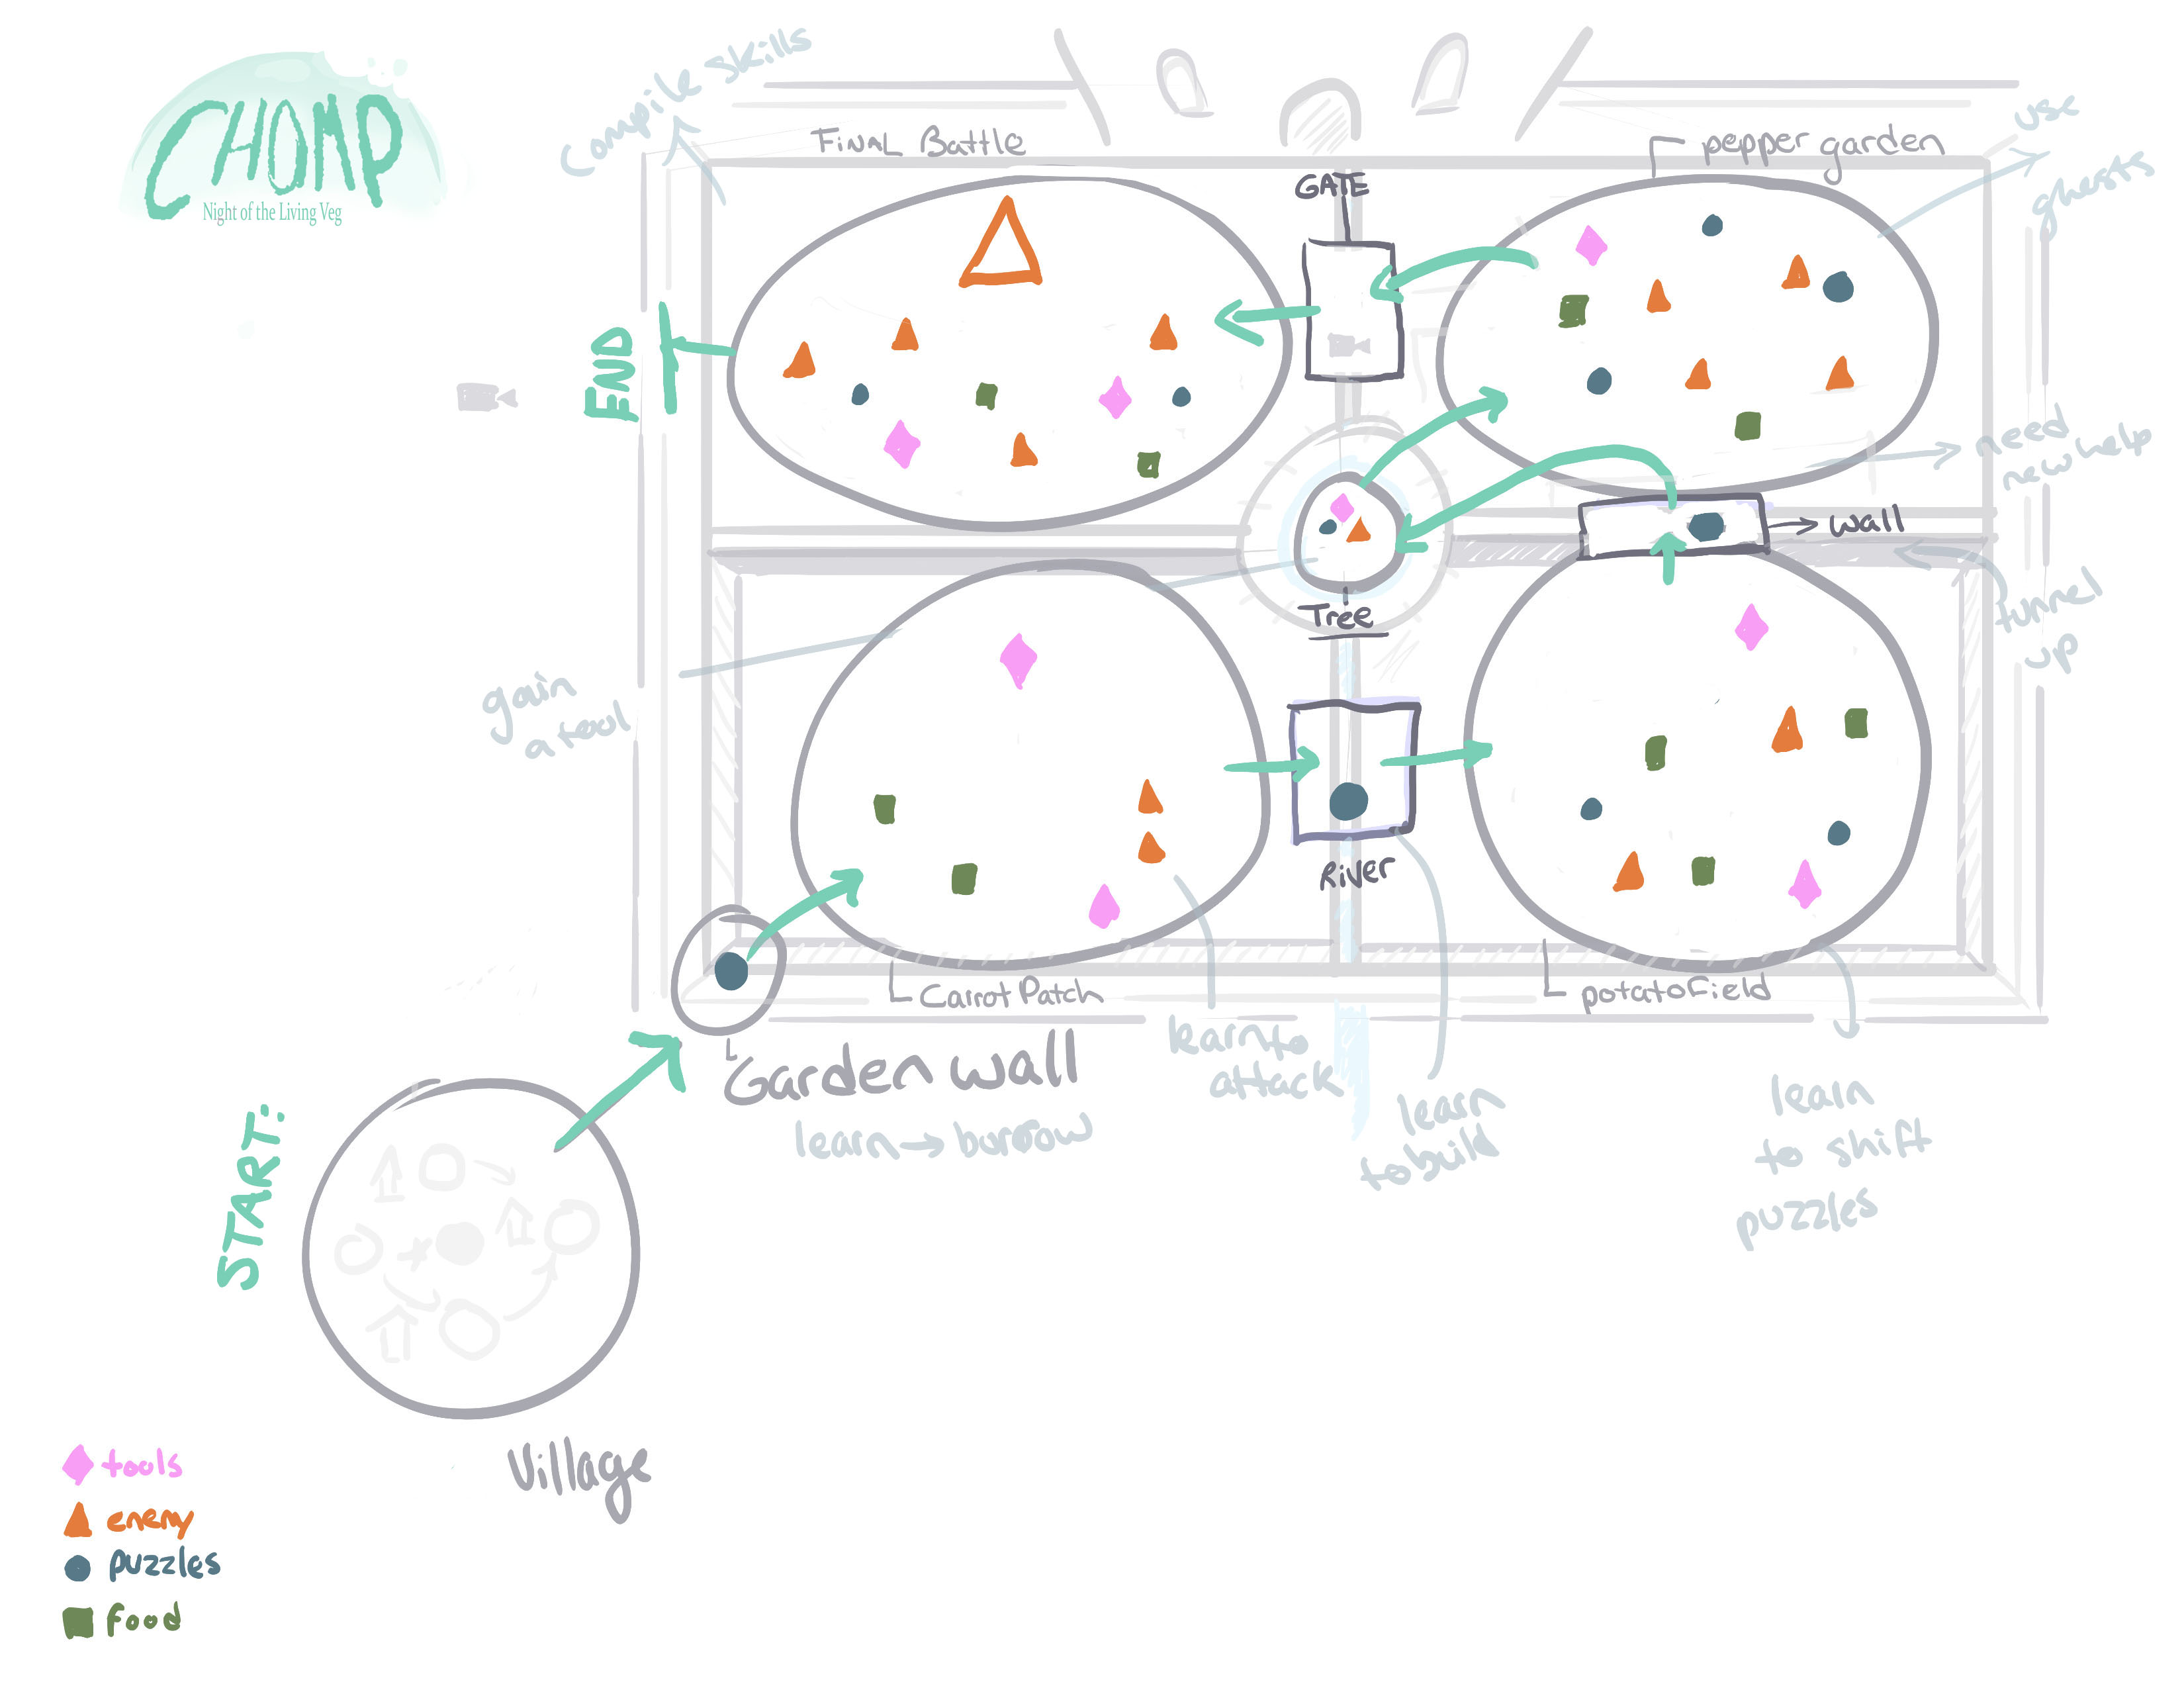 CHOMP
Night of the Living Veg
compile skills
FINAL Battle
pepper garden
use
ghosts
GATE
END
need
new help
wall
Tree
tunnel
up
gain
a tool
River
Carrot Patch
potato Field
Garden wall
learn → burrow
learn to
attack
learn
to build
learn
to shift
puzzles
START:
Village
tools
enemy
puzzles
food